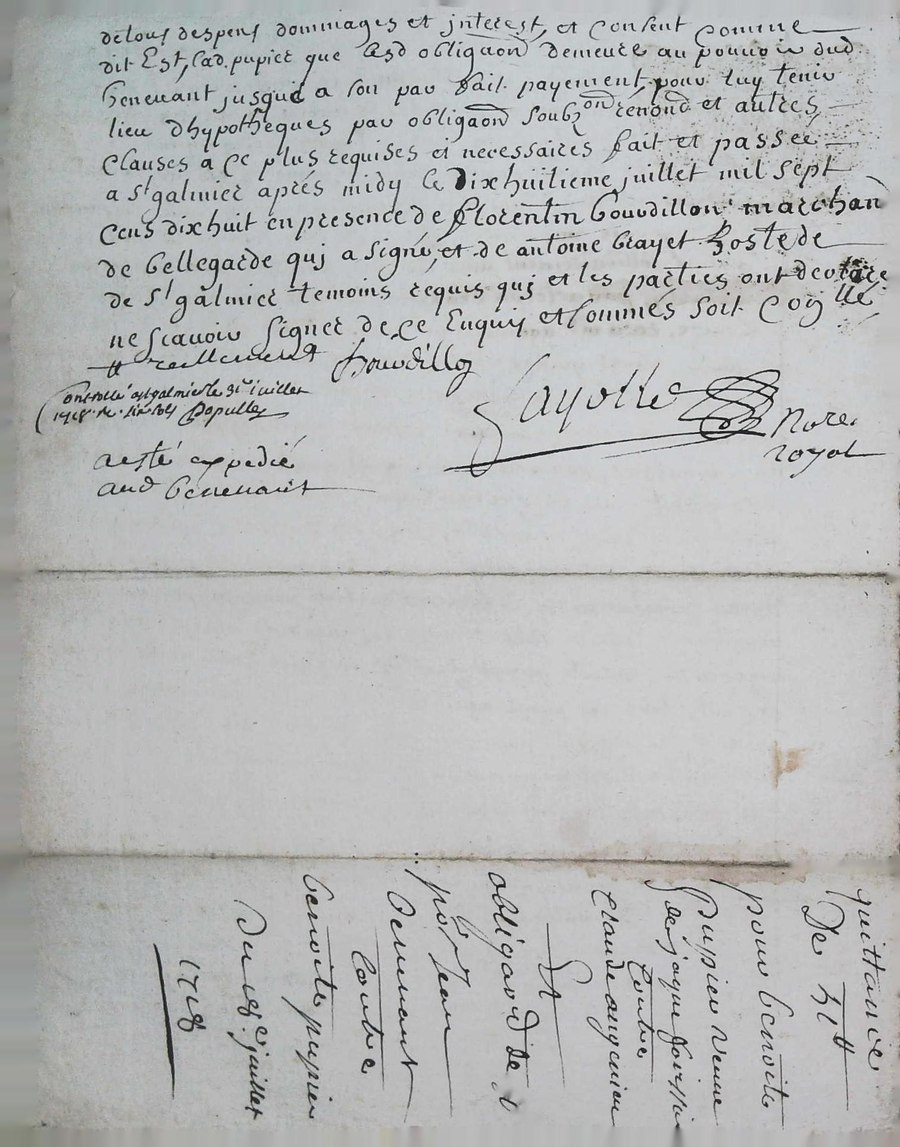 detous despens dommages et interest, et consent comme
dit Est, Lad. pupier que Lasd obligaon demeure au pouvoir dud
benevant jusque a son parfait payement, pour luy tenir
lieu dhypotheques par obligaon soubz on renond et autres
clauses a ce plus requises et necessaires fait et passé
a st galmier aprés midy le Dixhuitieme juillet mil sept
cens dixhuit en presence de florentin bourdillon marchand
de bellegarde quj a signé, et de antoine brayet hoste de
de st galmier temoins requis quj et les parties ont declaré
ne scavoir signer de ce Enquis et sommés soit
reellement Bourdillon
Controllé a st galmier le 31e juillet
1718 Populle
Jayolle Nore
royal
a esté expedié
aud benevant
quittance
De
pour benoite
Pupier veuve
de jaque
Contre
Claude
Et
obligaod de
por Jean
benevant
Contre
benoite pupier
Du 18e juillet
1718